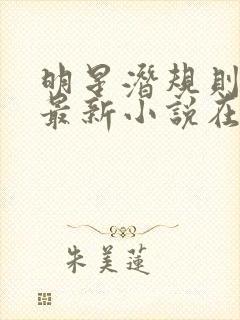 明星潛規則
最新小說在
朱美蓮